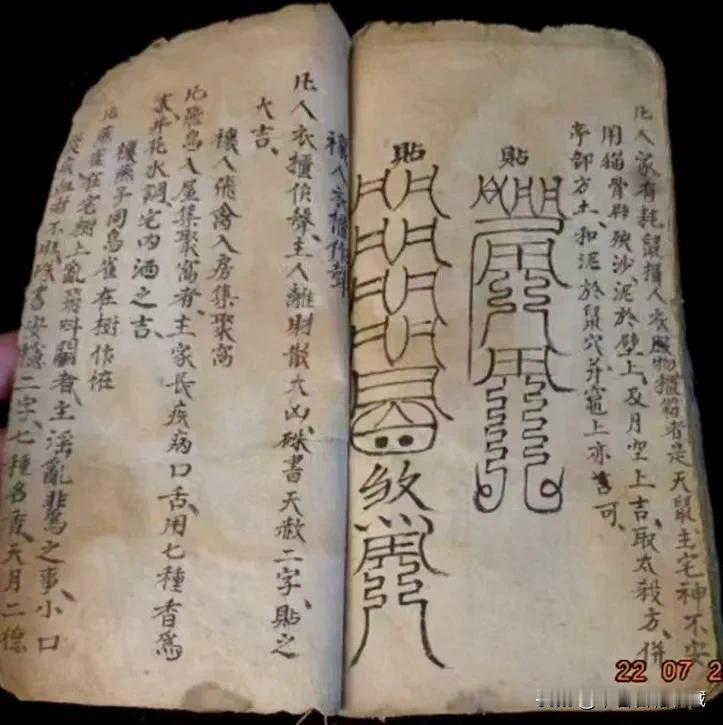 凡人家有耗鼠損人衣服物櫃箱者是天鼠、主宅神不安
用猫骨辟殃沙、泥於壁上、及月空上吉、取太殺方、併
亭部方土、和泥於鼠穴并竈上亦皆可、
貼
貼
煞
禳人衣櫃作聲
凡人衣櫃作聲、主人離財散大凶、硃書天赦二字、貼之
大吉、
禳人飛禽入房集聚窩
凡飛鳥入屋集聚窩者、主家長疾病口舌、用七種香為
末、井花水調宅内洒之吉、
禳燕子同鳥雀在樹作恠
凡燕雀在宅樹上亂飛叫鬪者、主淫亂非為之事、小口
災病血財不旺、硃書安穩二字、七種名香、天月二德
22 07 2